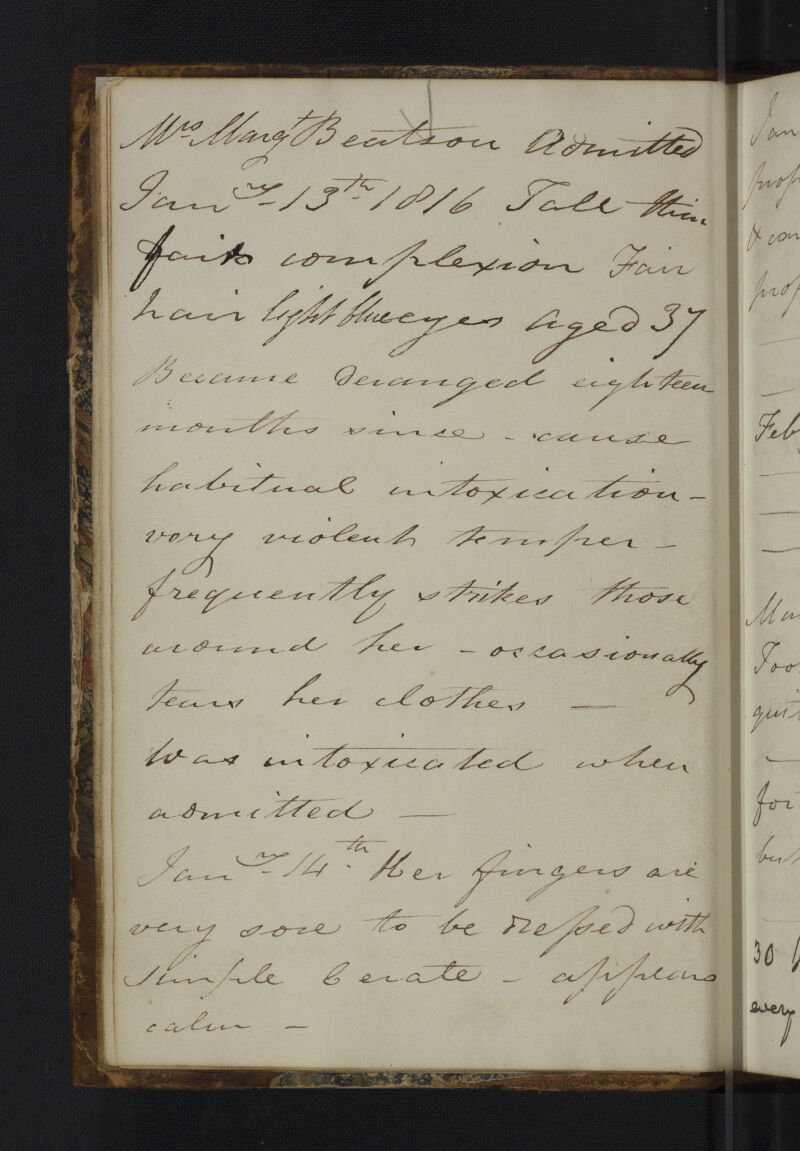 Mrs. Margt Beatson Admitted
Jany. 13th. 1816 Tall thin
fair complexion Fair
hair light blue eyes aged 37
Became deranged eighteen
months since - cause
habitual intoxication -
very violent temper -
frequently strikes those
around her - occasionally
tears her clothes —
Was intoxicated when
admitted —
Jany. 14th. Her fingers are
very sore to be dressed with
simple Cerate - appears
calm -
Jan
prop
& con
prof
Feb
Mar
Too
quit
for
but
30
every